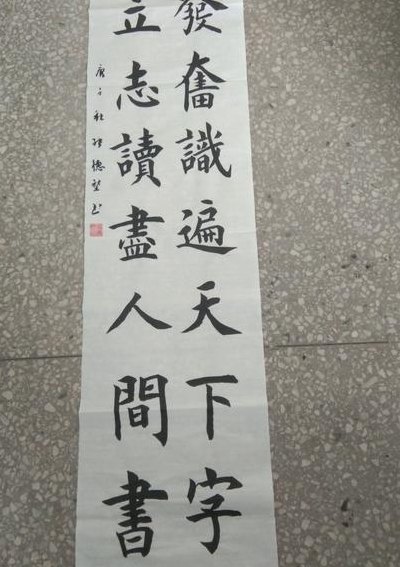 發奮識遍天下字
立志讀盡人間書
庚子秋
德
書